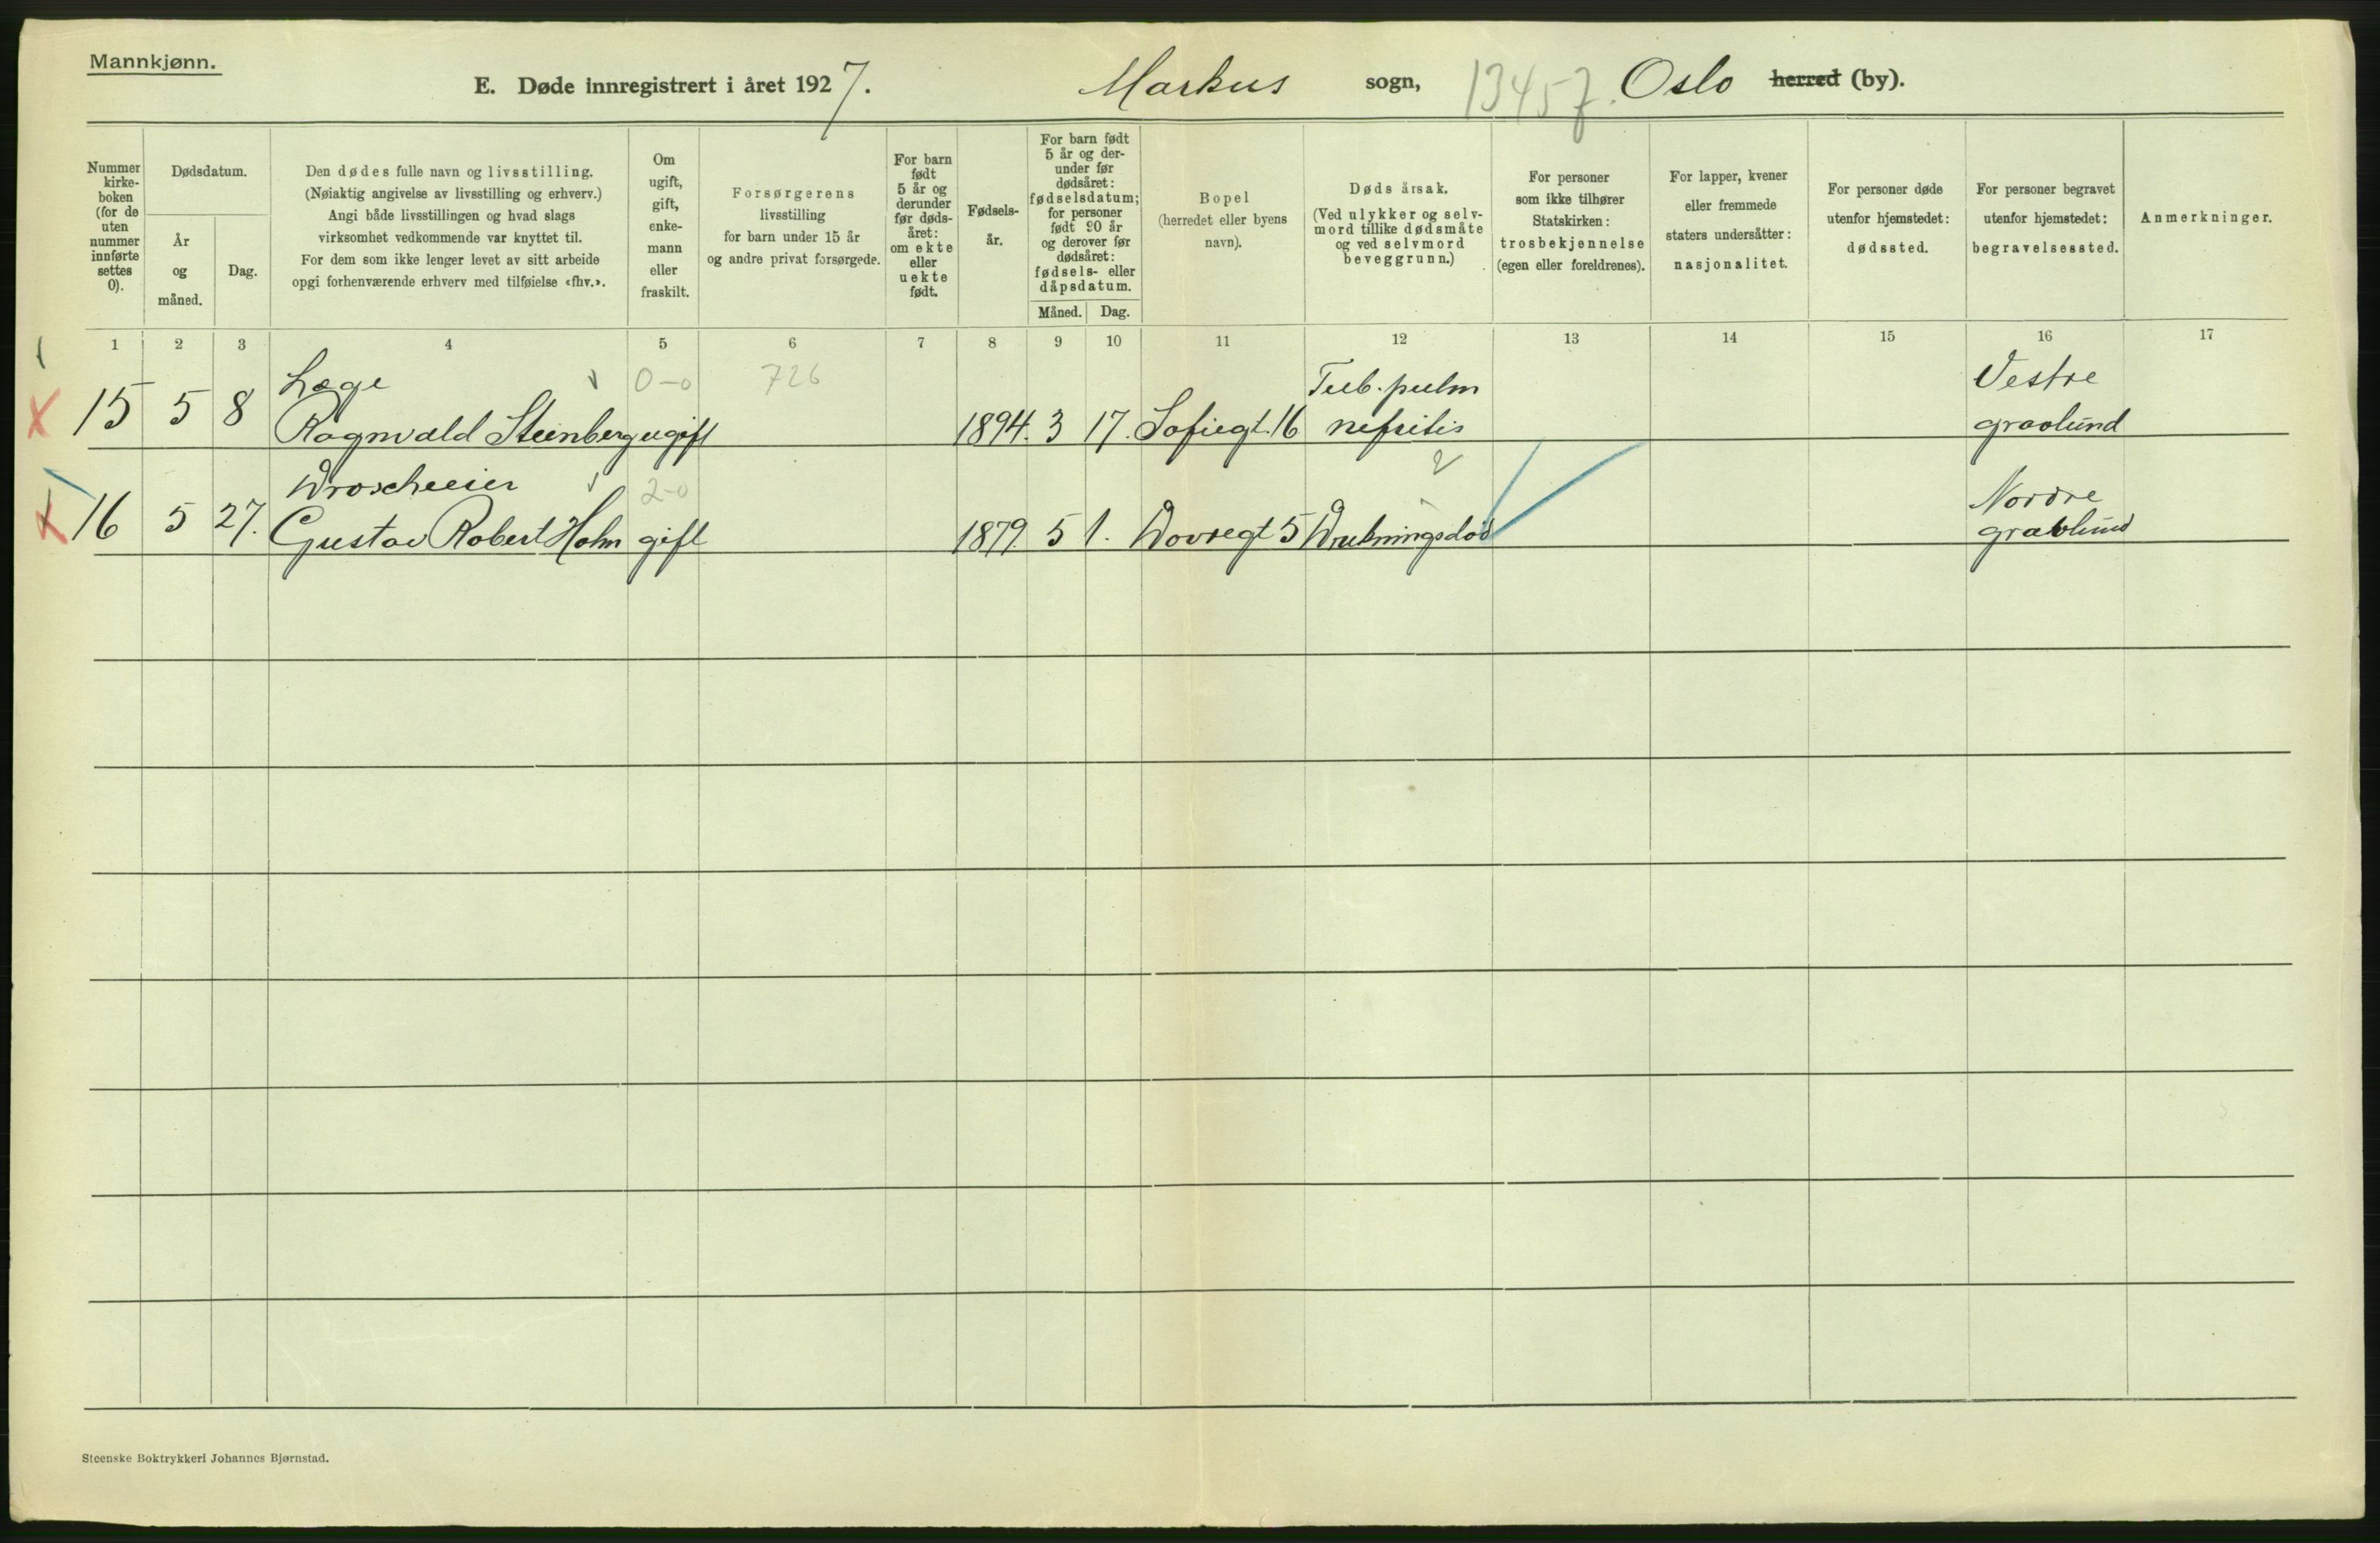 Mannkjønn.
E. Døde innregistrert i året 1927.
Markus sogn, 13457. Oslo herred (by).
Nummer kirke-boken (for de uten nummer innførte settes 0).
Dødsdatum.
År og måned.
Dag.
Den dødes fulle navn og livsstilling.
(Nøiaktig angivelse av livsstilling og erhverv.)
Angi både livsstillingen og hvad slags
virksomhet vedkommende var knyttet til.
For dem som ikke lenger levet av sitt arbeide
opgi forhenværende erhverv med tilføielse «fhv.».
Om
ugift,
gift,
enke-
mann
eller
fraskilt.
Forsørgerens
livsstilling
for barn under 15 år
og andre privat forsørgede.
For barn
født
5 år og
derunder
før døds-
året:
om ekte
eller
uekte
født.
Fødsels-
år.
For barn født
5 år og der-
under før
dødsåret:
fødselsdatum;
for personer
født 90 år
og derover før
dødsåret:
fødsels- eller
dåpsdatum.
Måned. Dag.
Bopel
(herredet eller byens
navn).
Døds årsak.
(Ved ulykker og selv-
mord tillike dødsmåte
og ved selvmord
beveggrunn.)
For personer
som ikke tilhører
Statskirken:
trosbekjennelse
(egen eller foreldrenes).
For lapper, kvener
eller fremmede
staters undersåtter:
nasjonalitet.
For personer døde
utenfor hjemstedet:
dødssted.
For personer begravet
utenfor hjemstedet:
begravelsessted.
Anmerkninger.
1 2 3 4 5 6 7 8 9 10 11 12 13 14 15 16 17
Læge 0-0 726 Tub. pulm Vestre
15 5 8 Ragnvald Steinberg ugift 1894. 3 17. Sofiegt. 16 nefritis gravlund
Droscheeier 2-0 Nordre
16 5 27. Gustav Robert Holm gift 1879. 5 1. Dovregt 5 Drukningsdød gravlund
Steenske Boktrykkeri Johannes Bjørnstad.